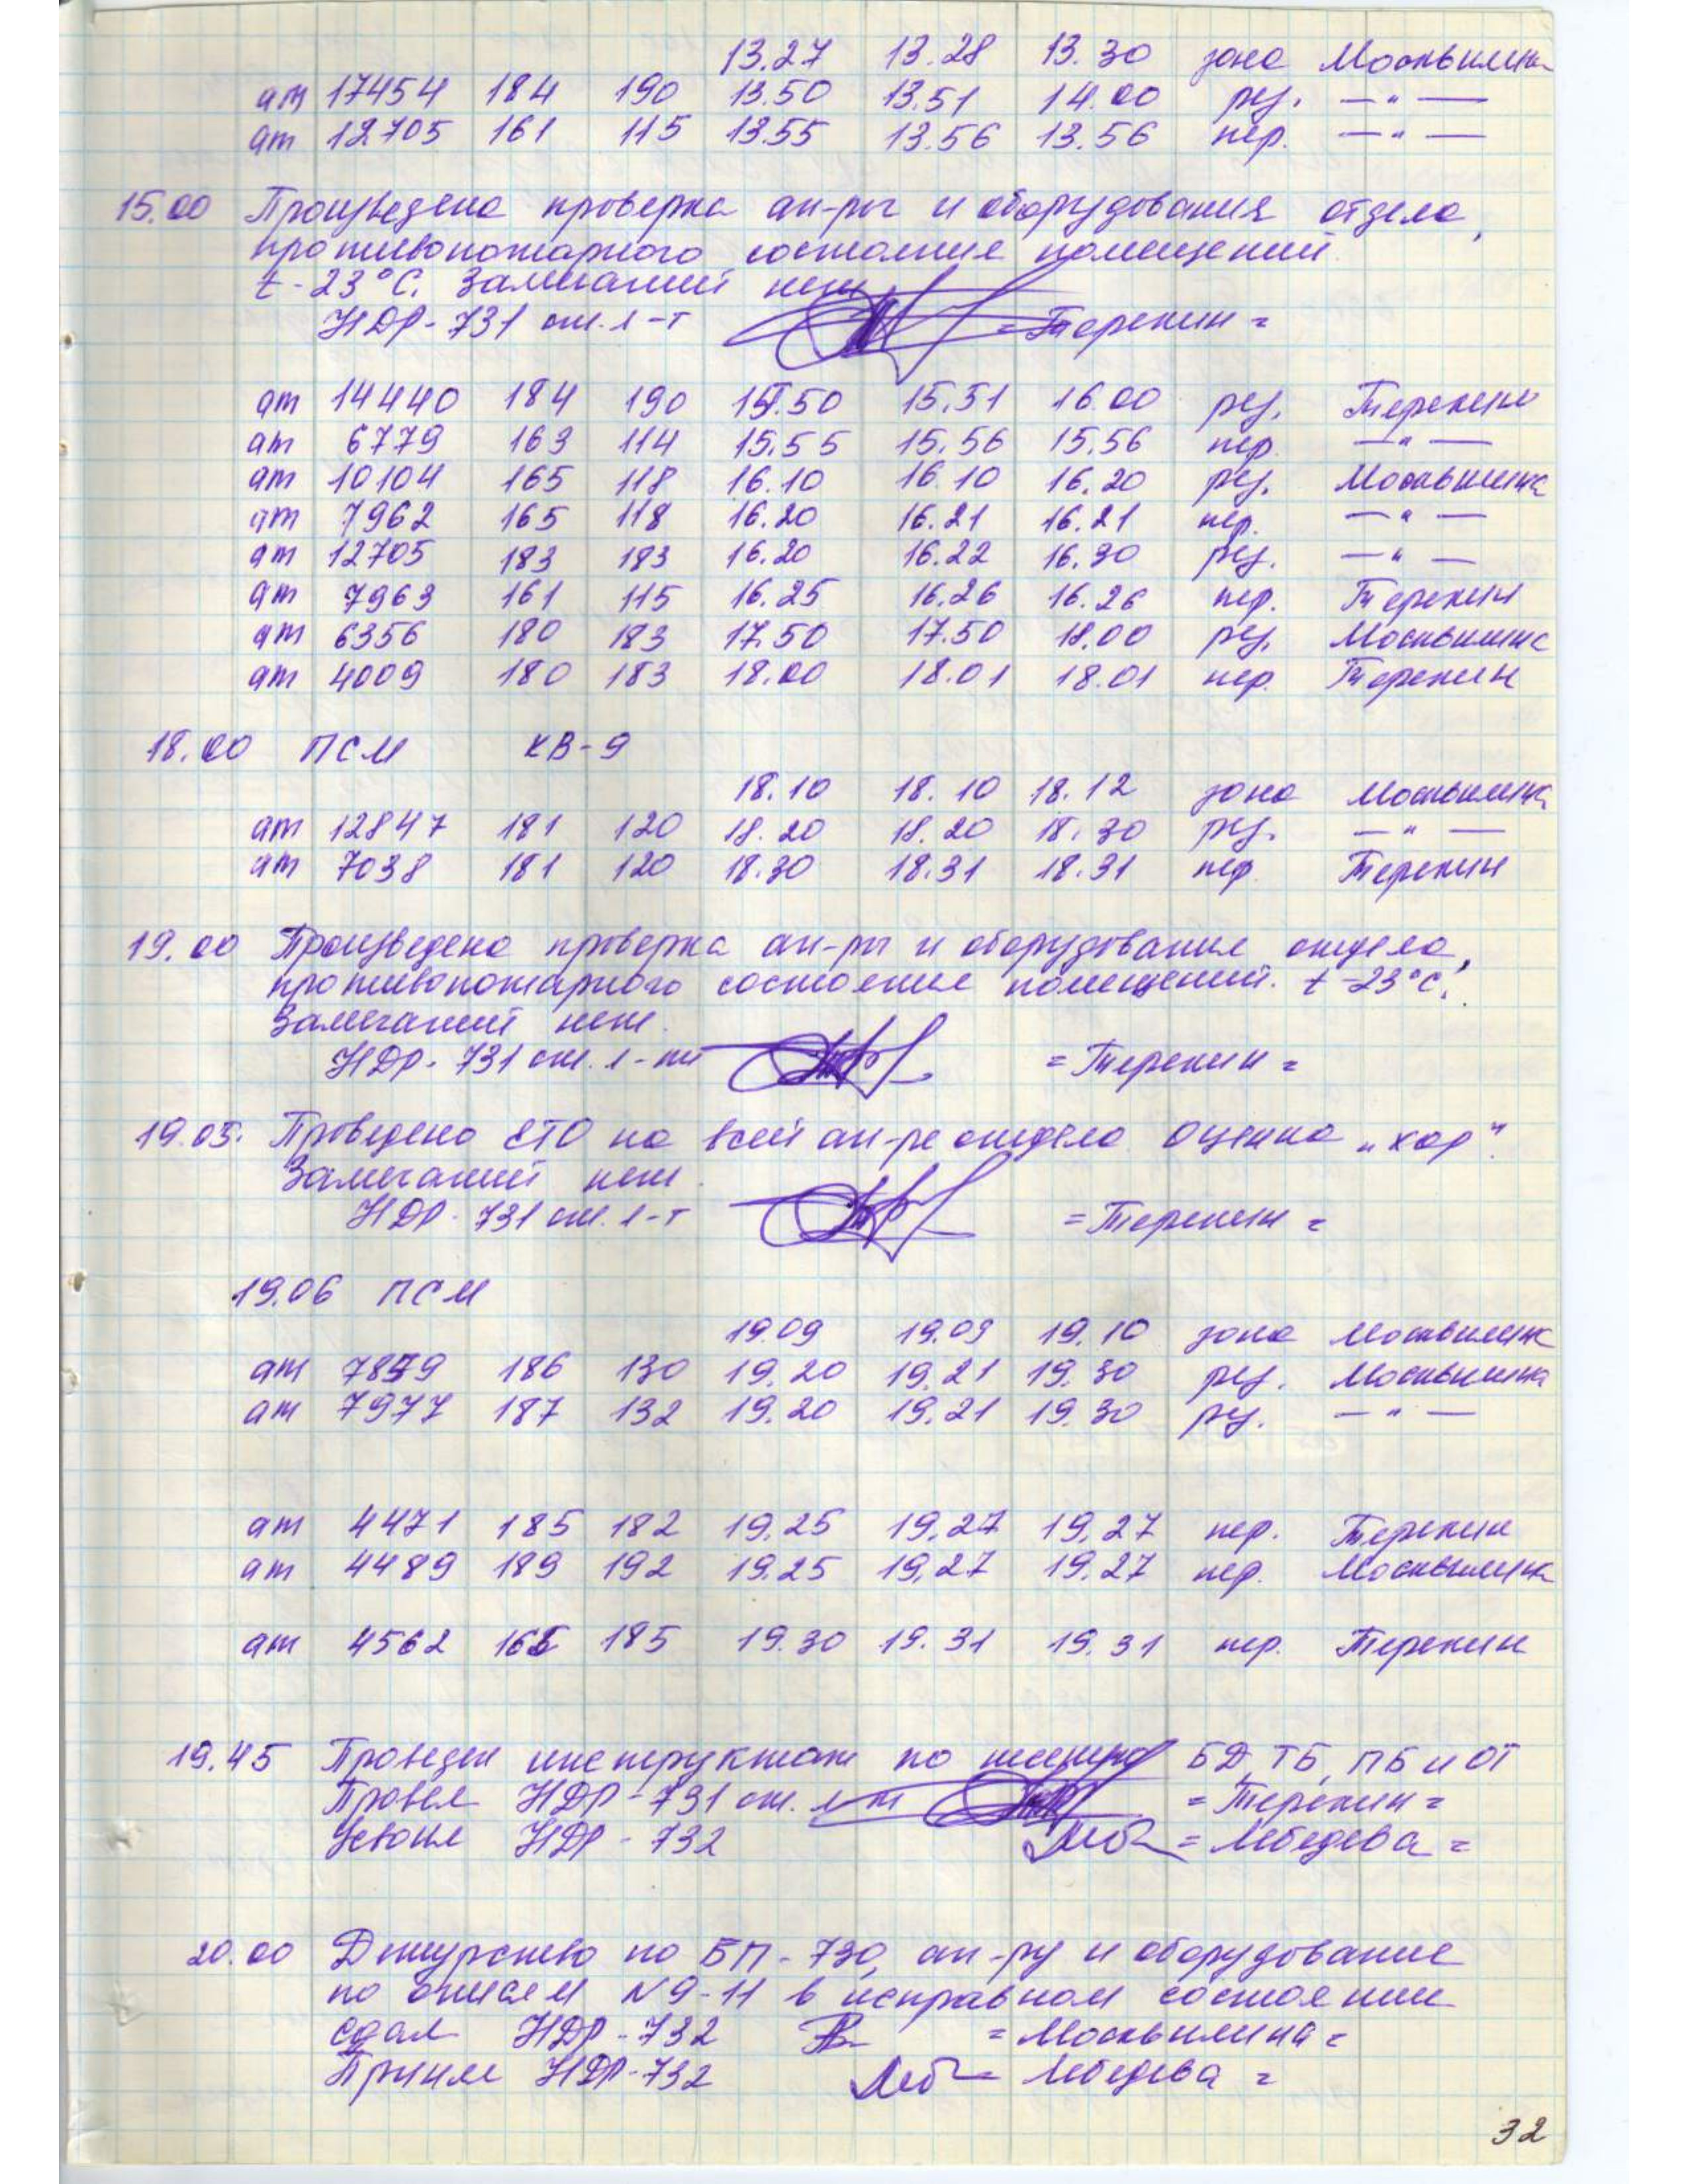 13.27 13.28 13.30 зона Москвилина
ат 17454 184 190 13.50 13.51 14.00 рез. —"—
ат 12705 161 115 13.55 13.56 13.56 пер. —"—
15.00 Произведена проверка ап-ры и оборудования отдела,
противопожарного состояние помещений.
t-23°C. Замечаний нет
НДР-731 ст. л-т =Терехин=
ат 14440 184 190 15.50 15.51 16.00 рез. Терехин
ат 6779 163 114 15.55 15.56 15.56 пер. —"—
ат 10104 165 118 16.10 16.10 16.20 рез. Москвилина
ат 7962 165 118 16.20 16.21 16.21 пер. —"—
ат 12705 183 183 16.20 16.22 16.30 рез. —"—
ат 7963 161 115 16.25 16.26 16.26 пер. Терехин
ат 6356 180 183 17.50 17.50 18.00 рез. Москвилина
ат 4009 180 183 18.00 18.01 18.01 пер. Терехин
18.00 ПСМ КВ-9
18.10 18.10 18.12 зона Москвилина
ат 12847 181 120 18.20 18.20 18.30 рез. —"—
ат 7038 181 120 18.30 18.31 18.31 пер. Терехин
19.00 Произведена проверка ап-ры и оборудования отдела,
противопожарного состояние помещений. t-23°C.
Замечаний нет.
НДР-731 ст. л-нт =Терехин=
19.05. Проведено ЕТО на всей ап-ре отдела. Оценка „хор".
Замечаний нет.
НДР-731 ст. л-т =Терехин=
19.06 ПСМ
19.09 19.09 19.10 зона Москвилина
ат 7879 186 130 19.20 19.21 19.30 рез. Москвилина
ат 7977 187 132 19.20 19.21 19.30 рез. —"—
ат 4471 185 182 19.25 19.27 19.27 пер. Терехин
ат 4489 189 192 19.25 19.27 19.27 пер. Москвилина
ат 4562 165 185 19.30 19.31 19.31 пер. Терехин
19.45 Проведен инструктаж по БД, ТБ, ПБ и ОТ
Провел НДР-731 ст. л-т =Терехин=
Усвоил НДР-732 =Лебедева=
20.00 Дежурство по БП-730, ап-ру и оборудование
по описям N9-11 в исправном состоянии
Сдал НДР-732 =Москвилина=
Принял НДР-732 Лебедева=
32